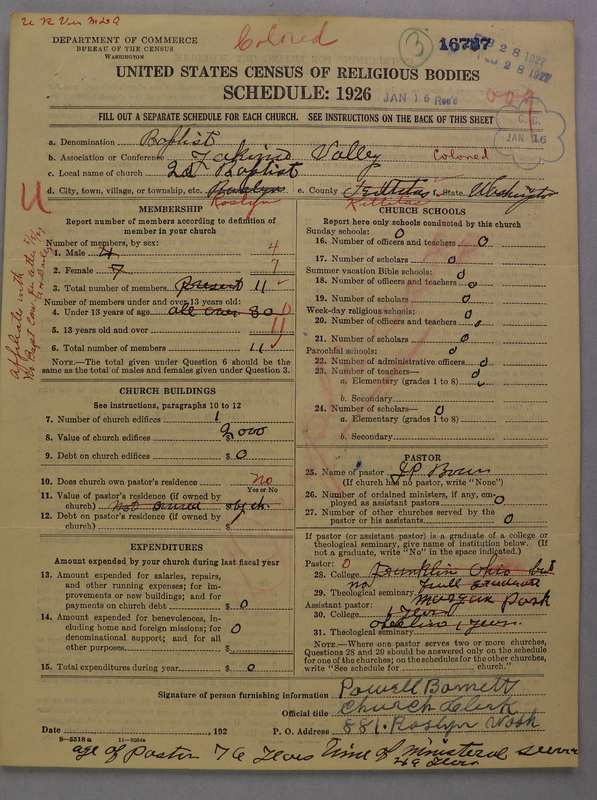 Colored
3
16737
FEB 28 1927
FEB 28 1927
DEPARTMENT OF COMMERCE
BUREAU OF THE CENSUS
WASHINGTON
UNITED STATES CENSUS OF RELIGIOUS BODIES
SCHEDULE: 1926
JAN 16 Rec'd
C. C.
JAN 16
FILL OUT A SEPARATE SCHEDULE FOR EACH CHURCH. SEE INSTRUCTIONS ON THE BACK OF THIS SHEET
a. Denomination Baptist
b. Association or Conference Yakima Valley Colored
c. Local name of church 2d Baptist
d. City, town, village, or township, etc. Roslyn e. County Kittitas State Washington
Roslyn Kittitas
U
MEMBERSHIP
Report number of members according to definition of
member in your church
Number of members, by sex:
1. Male 4 4
2. Female 7 7
3. Total number of members present 11
Number of members under and over 13 years old:
4. Under 13 years of age all over 30 0
5. 13 years old and over 11
6. Total number of members 11
NOTE.—The total given under Question 6 should be the
same as the total of males and females given under Question 3.
CHURCH BUILDINGS
See instructions, paragraphs 10 to 12
7. Number of church edifices 1
8. Value of church edifices $ 2,000
9. Debt on church edifices $ 0
10. Does church own pastor's residence No
Yes or No
11. Value of pastor's residence (if owned by
church) not owned by ch.
12. Debt on pastor's residence (if owned by
church) $
EXPENDITURES
Amount expended by your church during last fiscal year
13. Amount expended for salaries, repairs,
and other running expenses; for im-
provements or new buildings; and for
payments on church debt $ 0
14. Amount expended for benevolences, in-
cluding home and foreign missions; for
denominational support; and for all
other purposes $ 0
15. Total expenditures during year $ 0
CHURCH SCHOOLS
Report here only schools conducted by this church
Sunday schools: 0
16. Number of officers and teachers 0
17. Number of scholars 0
Summer vacation Bible schools: 0
18. Number of officers and teachers 0
19. Number of scholars 0
Week-day religious schools: 0
20. Number of officers and teachers 0
21. Number of scholars 0
Parochial schools: 0
22. Number of administrative officers 0
23. Number of teachers— 0
a. Elementary (grades 1 to 8)
b. Secondary
24. Number of scholars— 0
a. Elementary (grades 1 to 8)
b. Secondary
PASTOR
25. Name of pastor J P Brown
(If church has no pastor, write "None")
26. Number of ordained ministers, if any, em-
ployed as assistant pastors 0
27. Number of other churches served by the
pastor or his assistants 0
If pastor (or assistant pastor) is a graduate of a college or
theological seminary, give name of institution below. (If
not a graduate, write "No" in the space indicated.)
Pastor: 0
28. College Franklin Ohio but
no full graduate
29. Theological seminary Morgan Park
Assistant pastor:
30. College 1 year
Oberlino 1 year.
31. Theological seminary
NOTE.—Where one pastor serves two or more churches,
Questions 28 and 29 should be answered only on the schedule
for one of the churches; on the schedules for the other churches,
write "See schedule for church."
Signature of person furnishing information Powell Barnett
Official title Church Clerk
Date , 192 P. O. Address 881. Roslyn Wash
8—5518 a
age of Pastor 76 Years Time of Ministeral service
46 Years